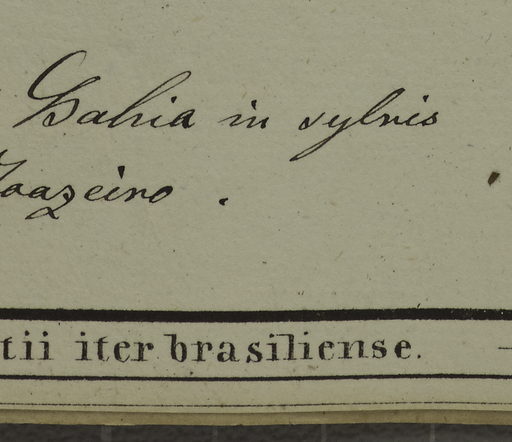 Bahia in sylvis
Joazeiro .
tii iter brasiliense.